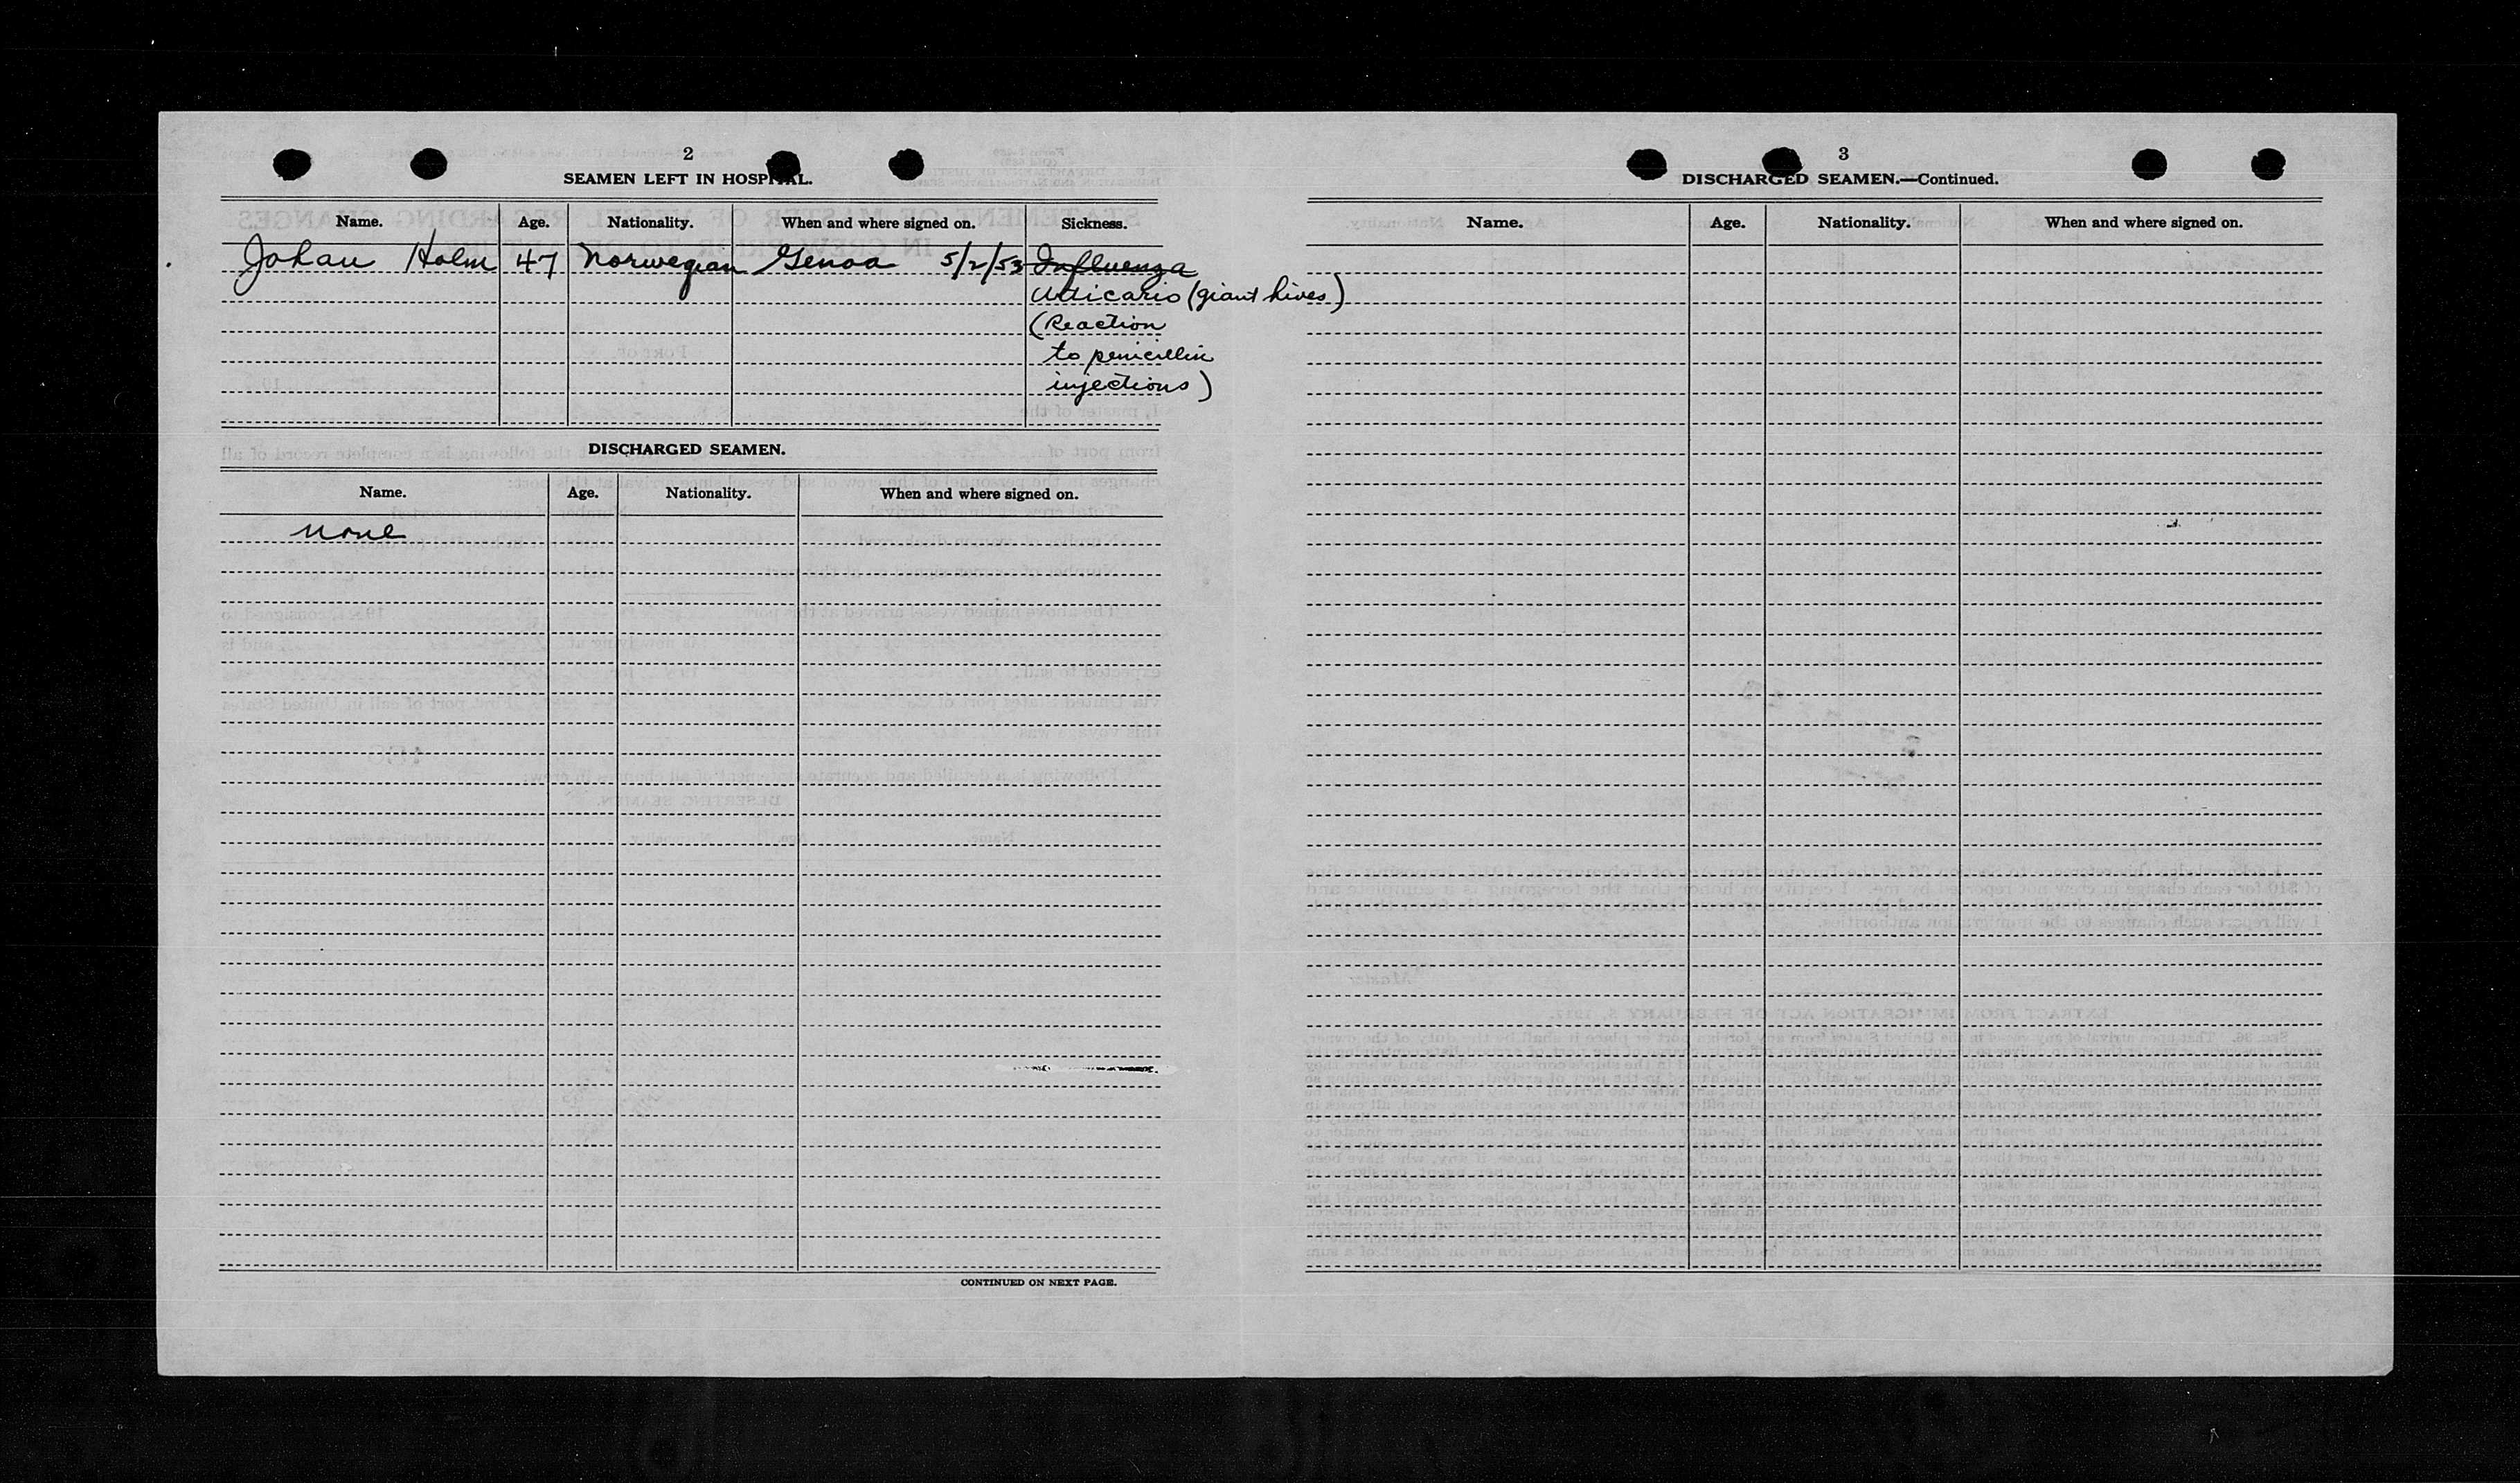 2
SEAMEN LEFT IN HOSPITAL.
Name. Age. Nationality. When and where signed on. Sickness.
Johan Holm 47 Norwegian Genoa 5/2/53 Influenza
Urticario (giant hives)
(Reaction
to penicillin
injections)
DISCHARGED SEAMEN.
Name. Age. Nationality. When and where signed on.
None
CONTINUED ON NEXT PAGE.
3
DISCHARGED SEAMEN.—Continued.
Name. Age. Nationality. When and where signed on.